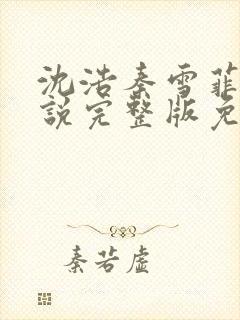 沈浩秦雪菲
說完整版免
秦若虛